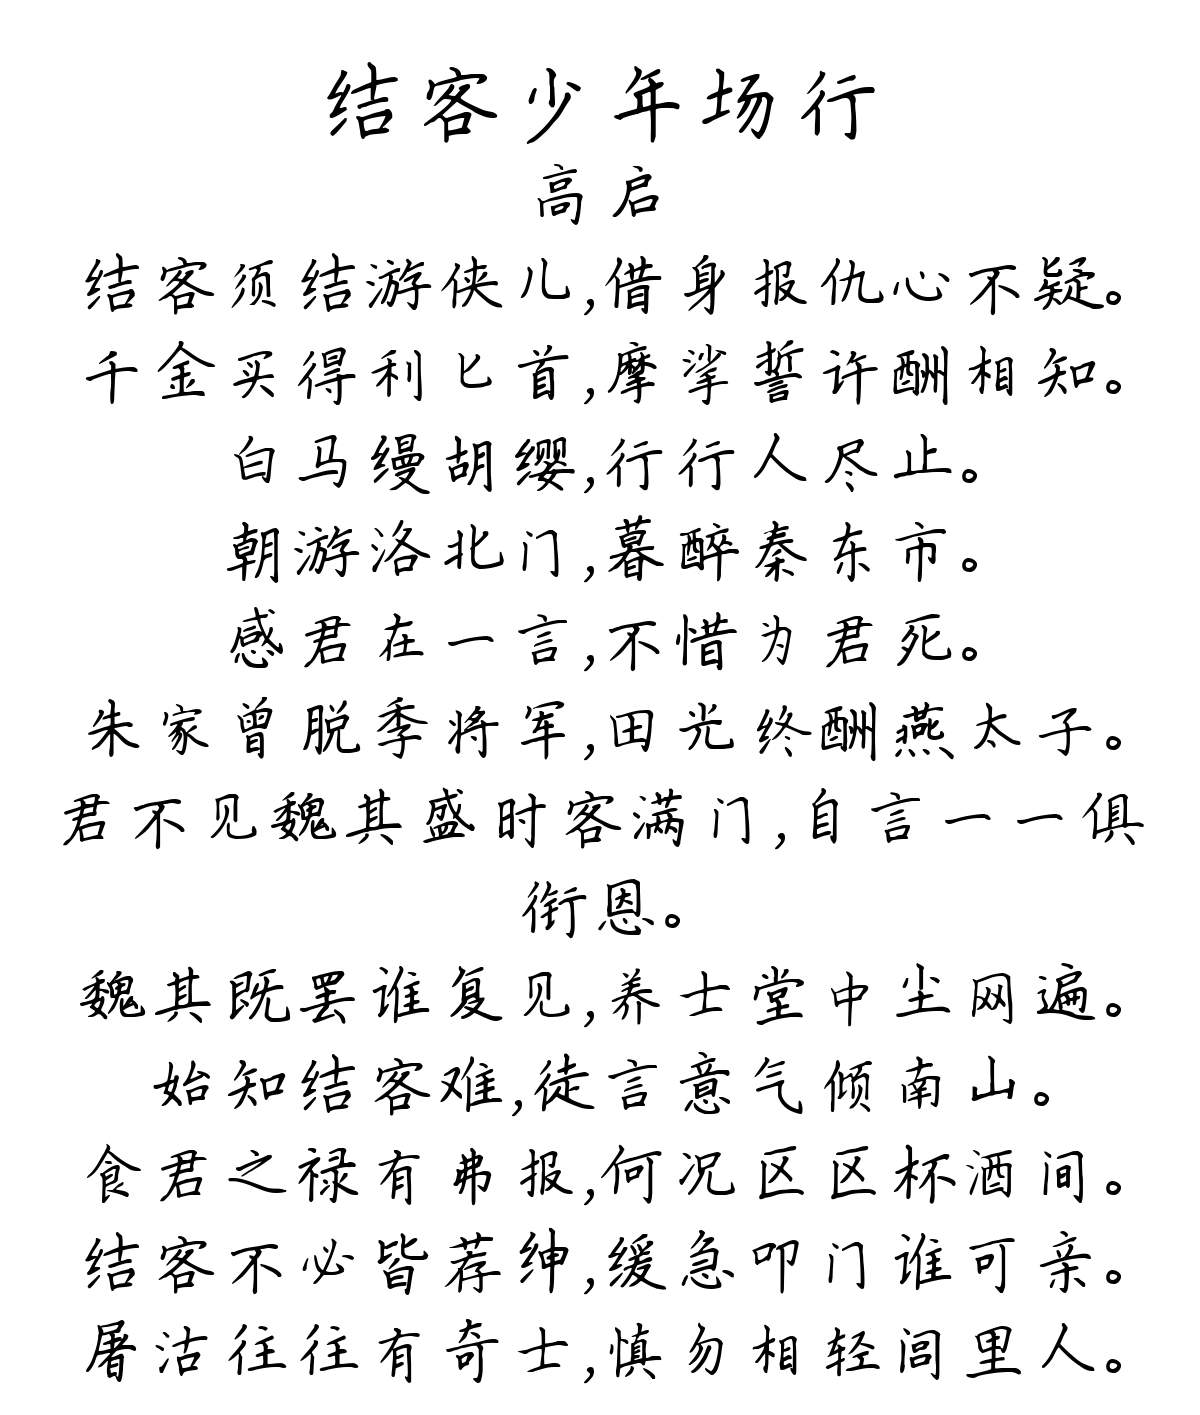 结客少年场行
高启
结客须结游侠儿,借身报仇心不疑。
千金买得利匕首,摩挲誓许酬相知。
白马缦胡缨,行行人尽止。
朝游洛北门,暮醉秦东市。
感君在一言,不惜为君死。
朱家曾脱季将军,田光终酬燕太子。
君不见魏其盛时客满门,自言一一俱
衔恩。
魏其既罢谁复见,养士堂中尘网遍。
始知结客难,徒言意气倾南山。
食君之禄有弗报,何况区区杯酒间。
结客不必皆荐绅,缓急叩门谁可亲。
屠沽往往有奇士,慎勿相轻闾里人。